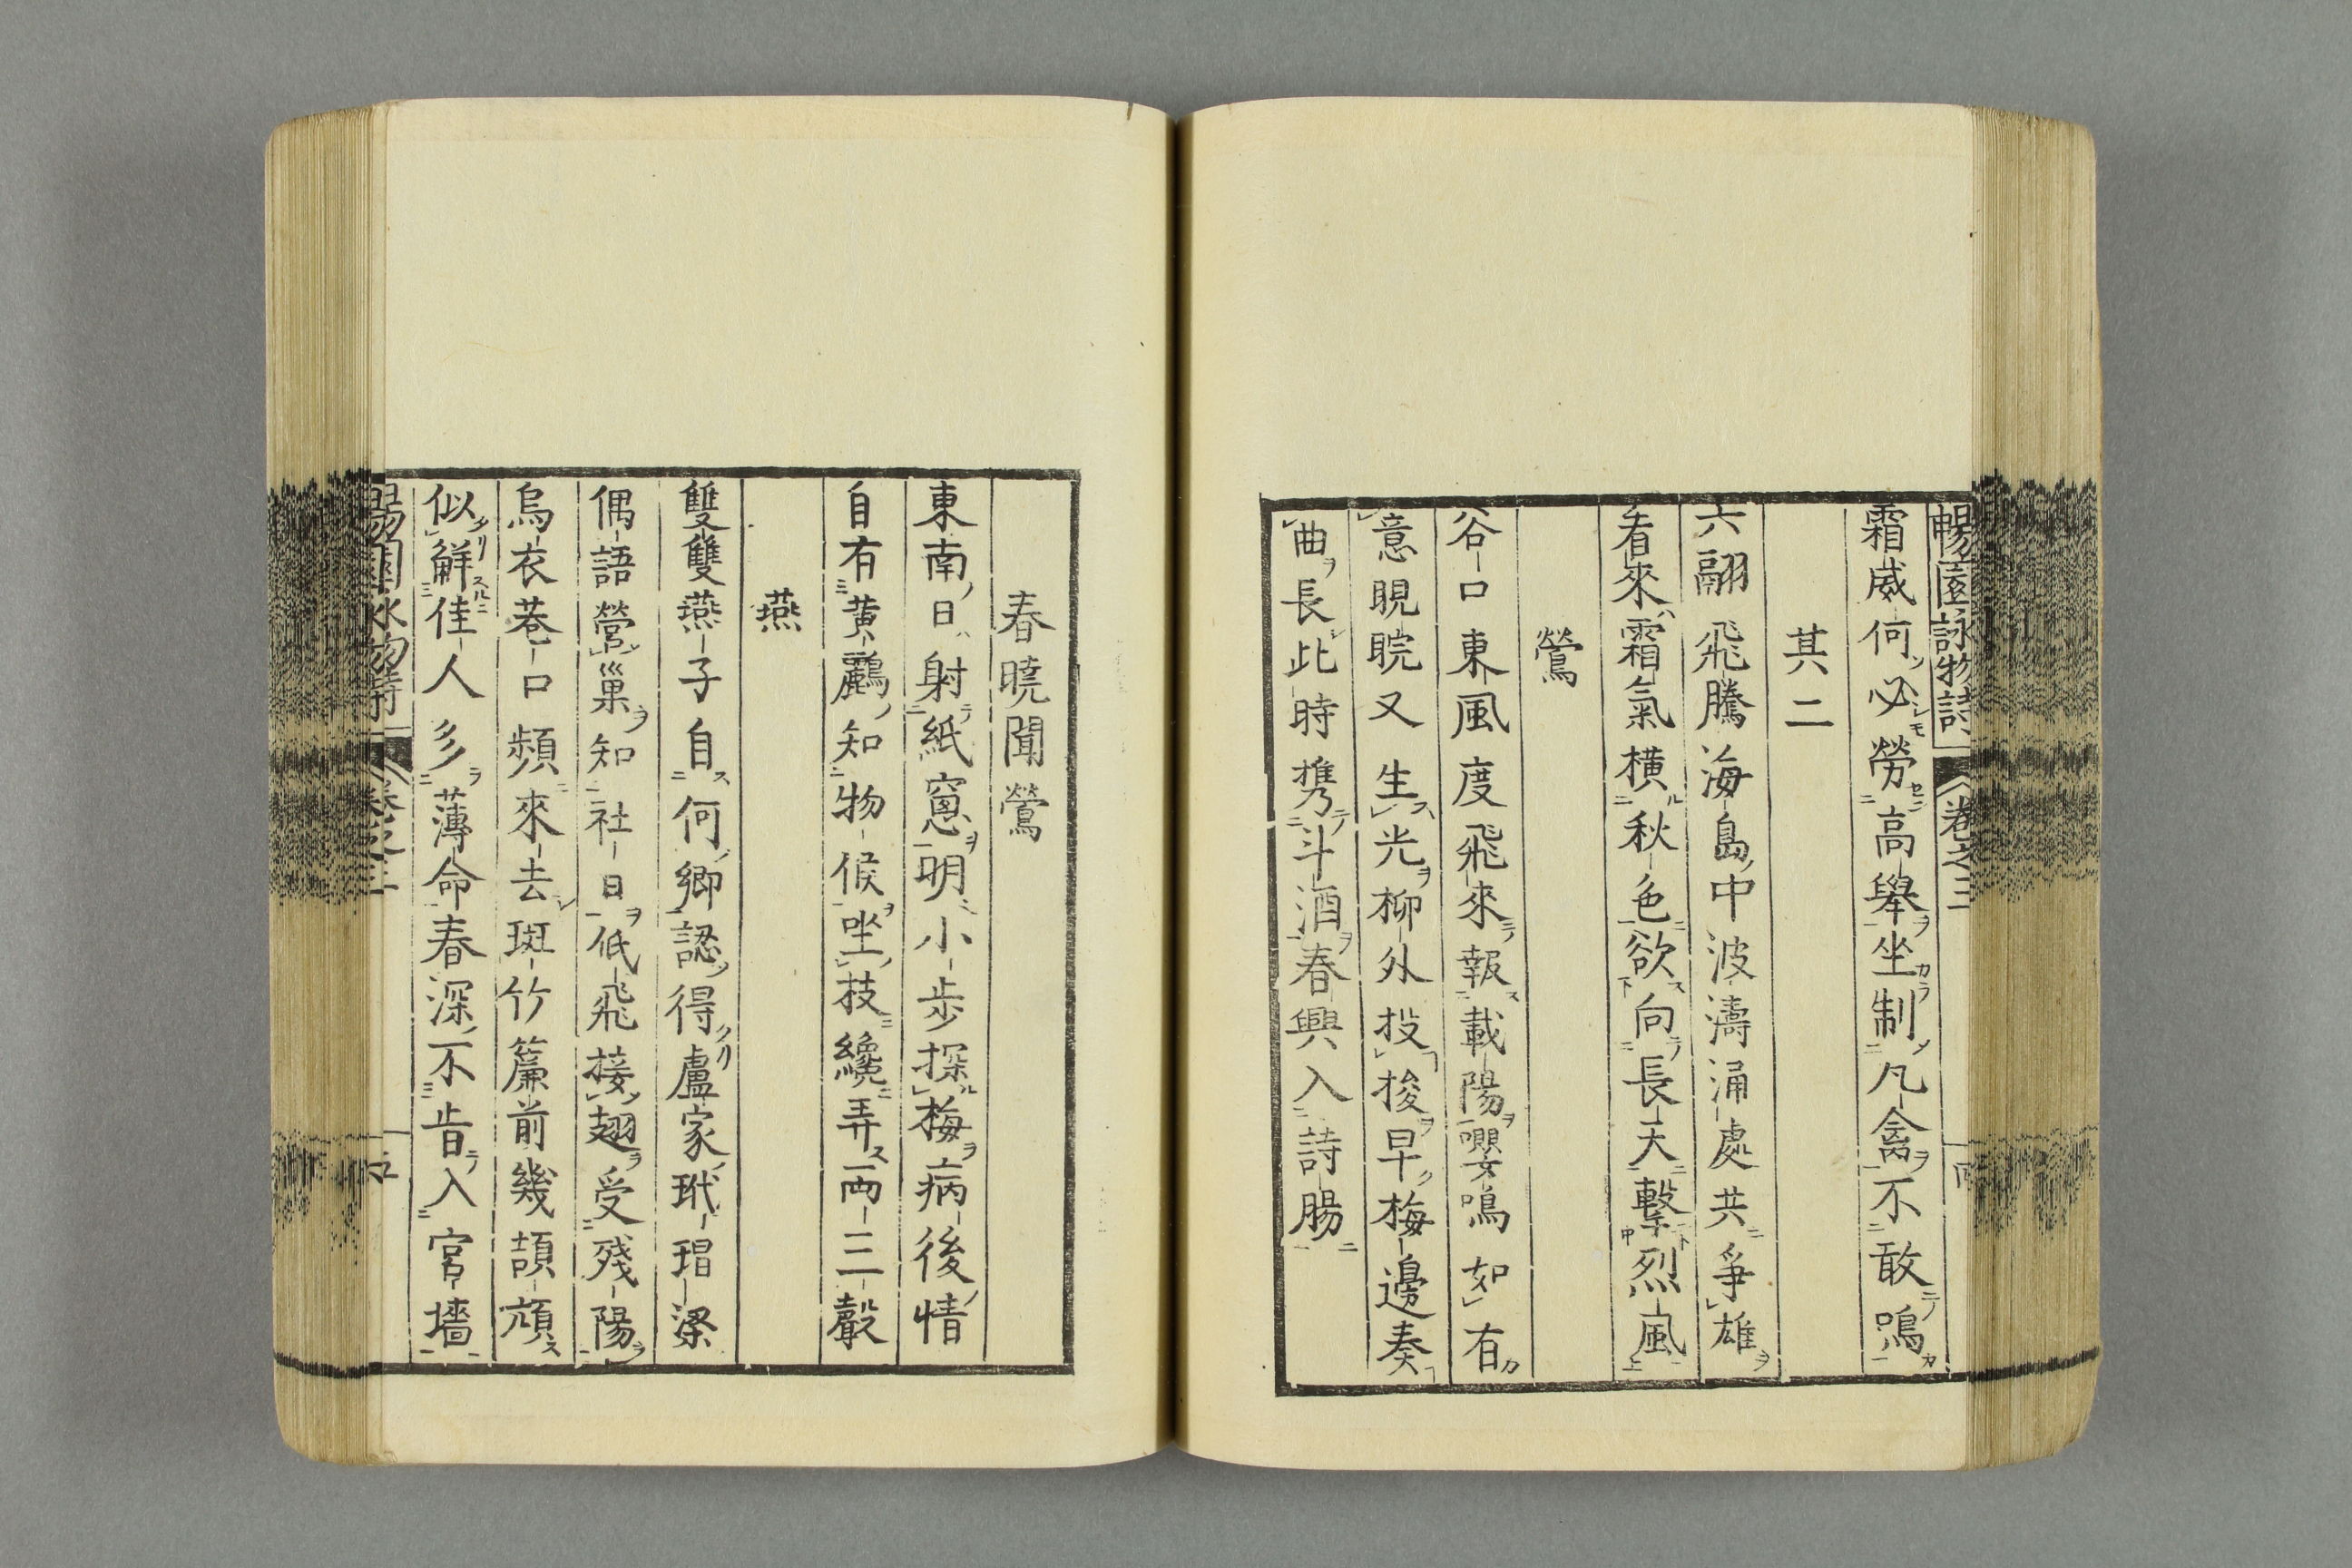 暢園詠物詩 卷之三
霜威何必勞高舉坐制凡禽不敢鳴
其二
六翮飛騰海島中波濤涌處共爭雄
看來霜氣橫秋色欲向長天擊烈風
鶯
谷口東風度飛來報載陽嚶鳴如有
意睍睆又生光柳外投梭早梅邊奏
曲長此時携斗酒春興入詩腸
春曉聞鶯
東南日射紙窻明小步探梅病後情
自有黄鸝知物候坐枝纔弄両三聲
燕
雙雙燕子自何鄉認得盧家玳瑁梁
偶語營巢知社日低飛接翅受殘陽
烏衣巷口頻來去斑竹簾前幾頡頏
似觧佳人多薄命春深不肯入宮墻